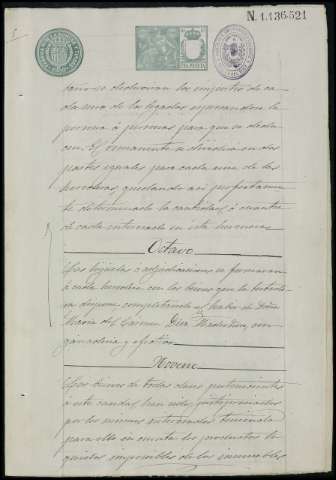 N. 1.136.521
tario se deducirán los importes de ca
da una de los legados expresandose la
persona o personas para que se dedu
cen. El remanente se dividirá en dos
partes iguales para cada una de las
herederas quedando así perfectamen
te determinada la cantidad o cuantía
de cada interesada en esta herencia
Octavo
Las hijuelas o adjudicaciones se formarán
a cada heredera con los bienes que la testado
ra dispone completandose el haber de Doña
María del Carmen Diez con
ganaderia y efectos
Noveno
Los bienes de todas clases pertenecientes
á este caudal han sido justipreciados
por los mismos interesados teniendo
para ello en cuenta los productos lí
quidos imponibles de los inmuebles